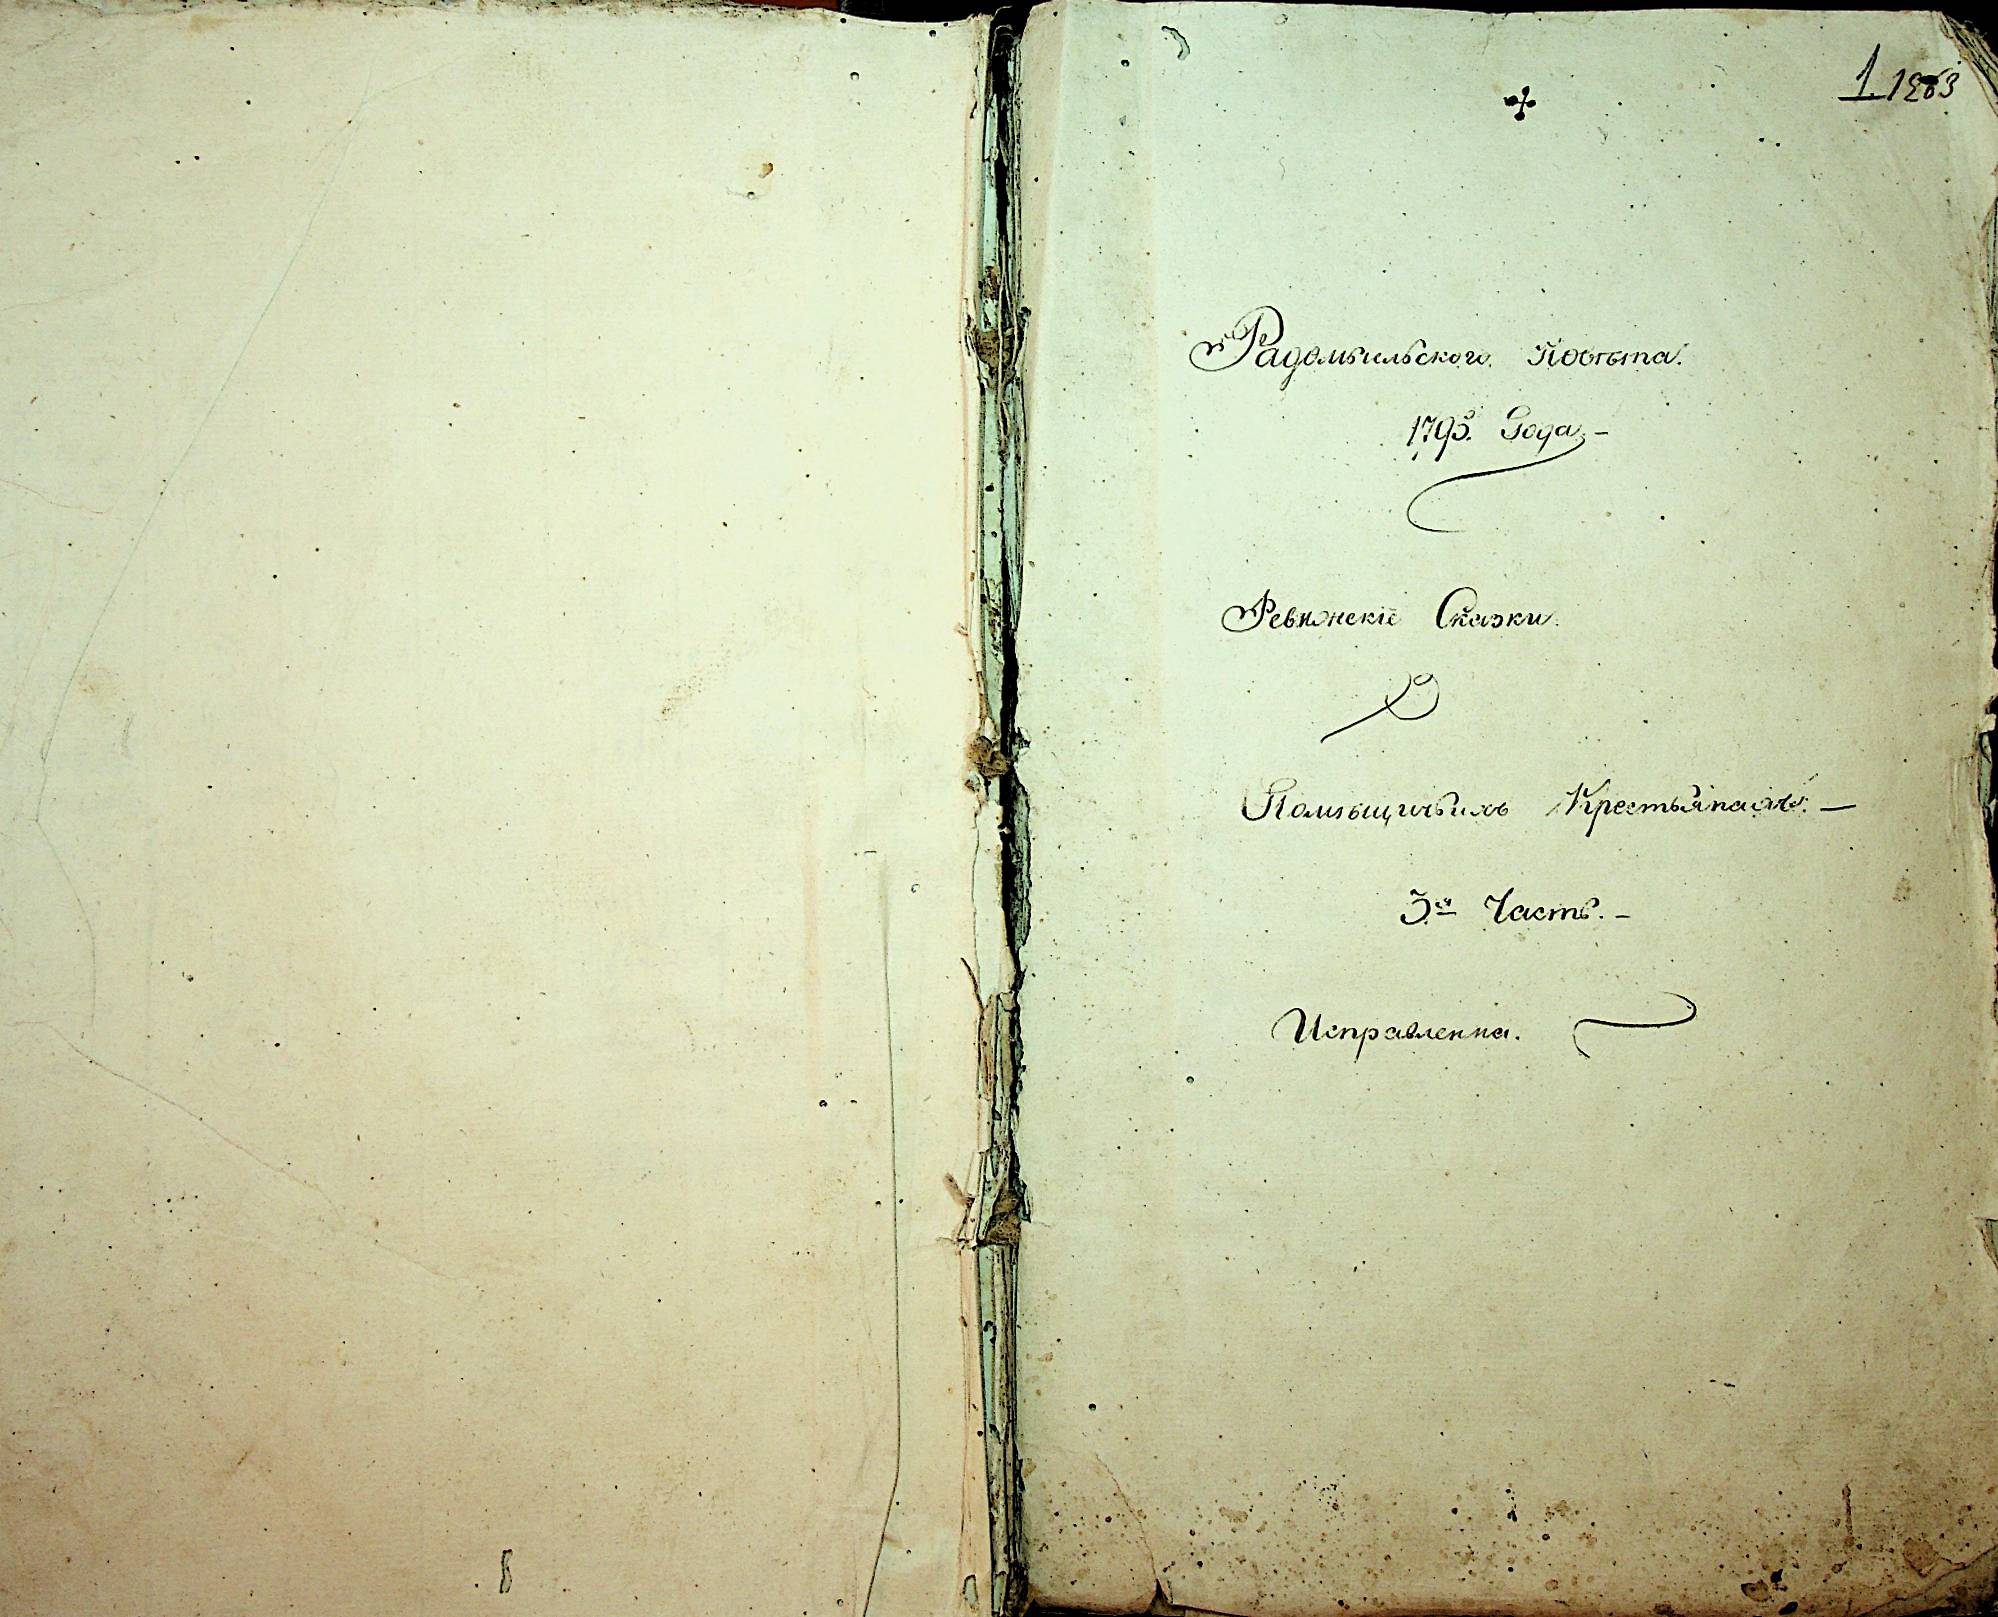 1. 1263
Радомысльского Повѣта.
1795. Года
Ревизскіе Сказки.
Помѣщичьимъ Крестьянамъ.
3я Часть.
Исправленна.